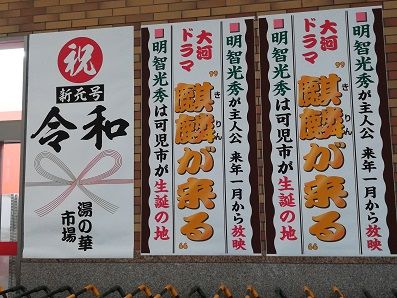 祝
新元号
令和
湯の華
市場
大河
ドラマ
明智光秀が主人公 来年一月から放映
"麒麟が来る"
きりん
明智光秀は可児市が生誕の地
大河
ドラマ
明智光秀が主人公 来年一月から放映
"麒麟が来る"
きりん
明智光秀は可児市が生誕の地